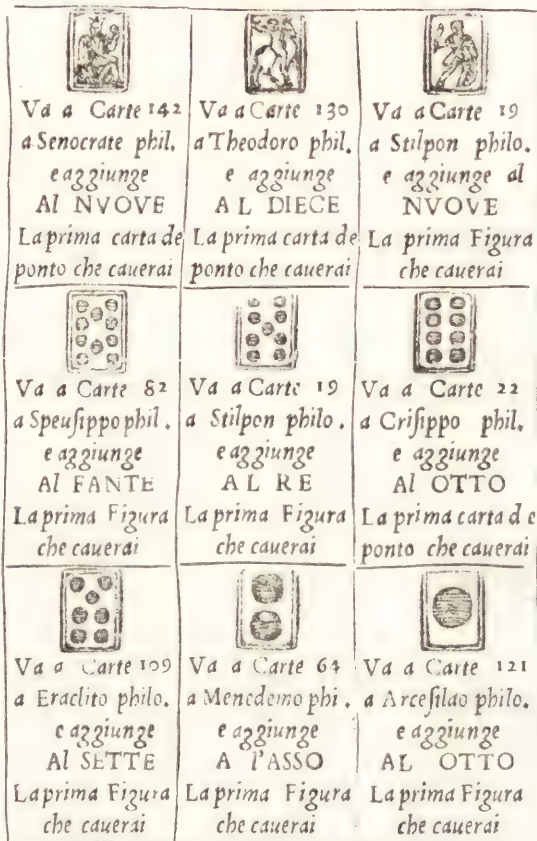 Va a Carte 142
a Senocrate phil.
e aggiunge
Al NVOVE
La prima carta de
ponto che cauerai
Va a Carte 130
a Theodoro phil.
e aggiunge
AL DIECE
La prima carta de
ponto che cauerai
Va a Carte 19
a Stilpon philo.
e aggiunge al
NVOVE
La prima Figura
che cauerai
Va a Carte 82
a Speuſippo phil.
e aggiunge
Al FANTE
La prima Figura
che cauerai
Va a Carte 19
a Stilpon philo.
e aggiunge
AL RE
La prima Figura
che cauerai
Va a Carte 22
a Criſippo phil.
e aggiunge
Al OTTO
La prima carta de
ponto che cauerai
Va a Carte 109
a Eraclito philo.
e aggiunge
Al SETTE
La prima Figura
che cauerai
Va a Carte 64
a Menedemo phi.
e aggiunge
A l'ASSO
La prima Figura
che cauerai
Va a Carte 121
a Arceſilao philo.
e aggiunge
AL OTTO
La prima Figura
che cauerai